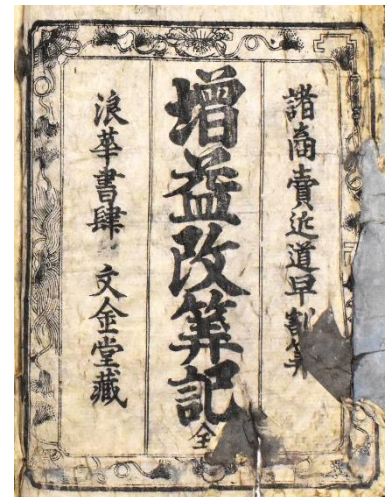 諸商賣近道早割算
增益改筭記全
浪華書肆 文金堂藏